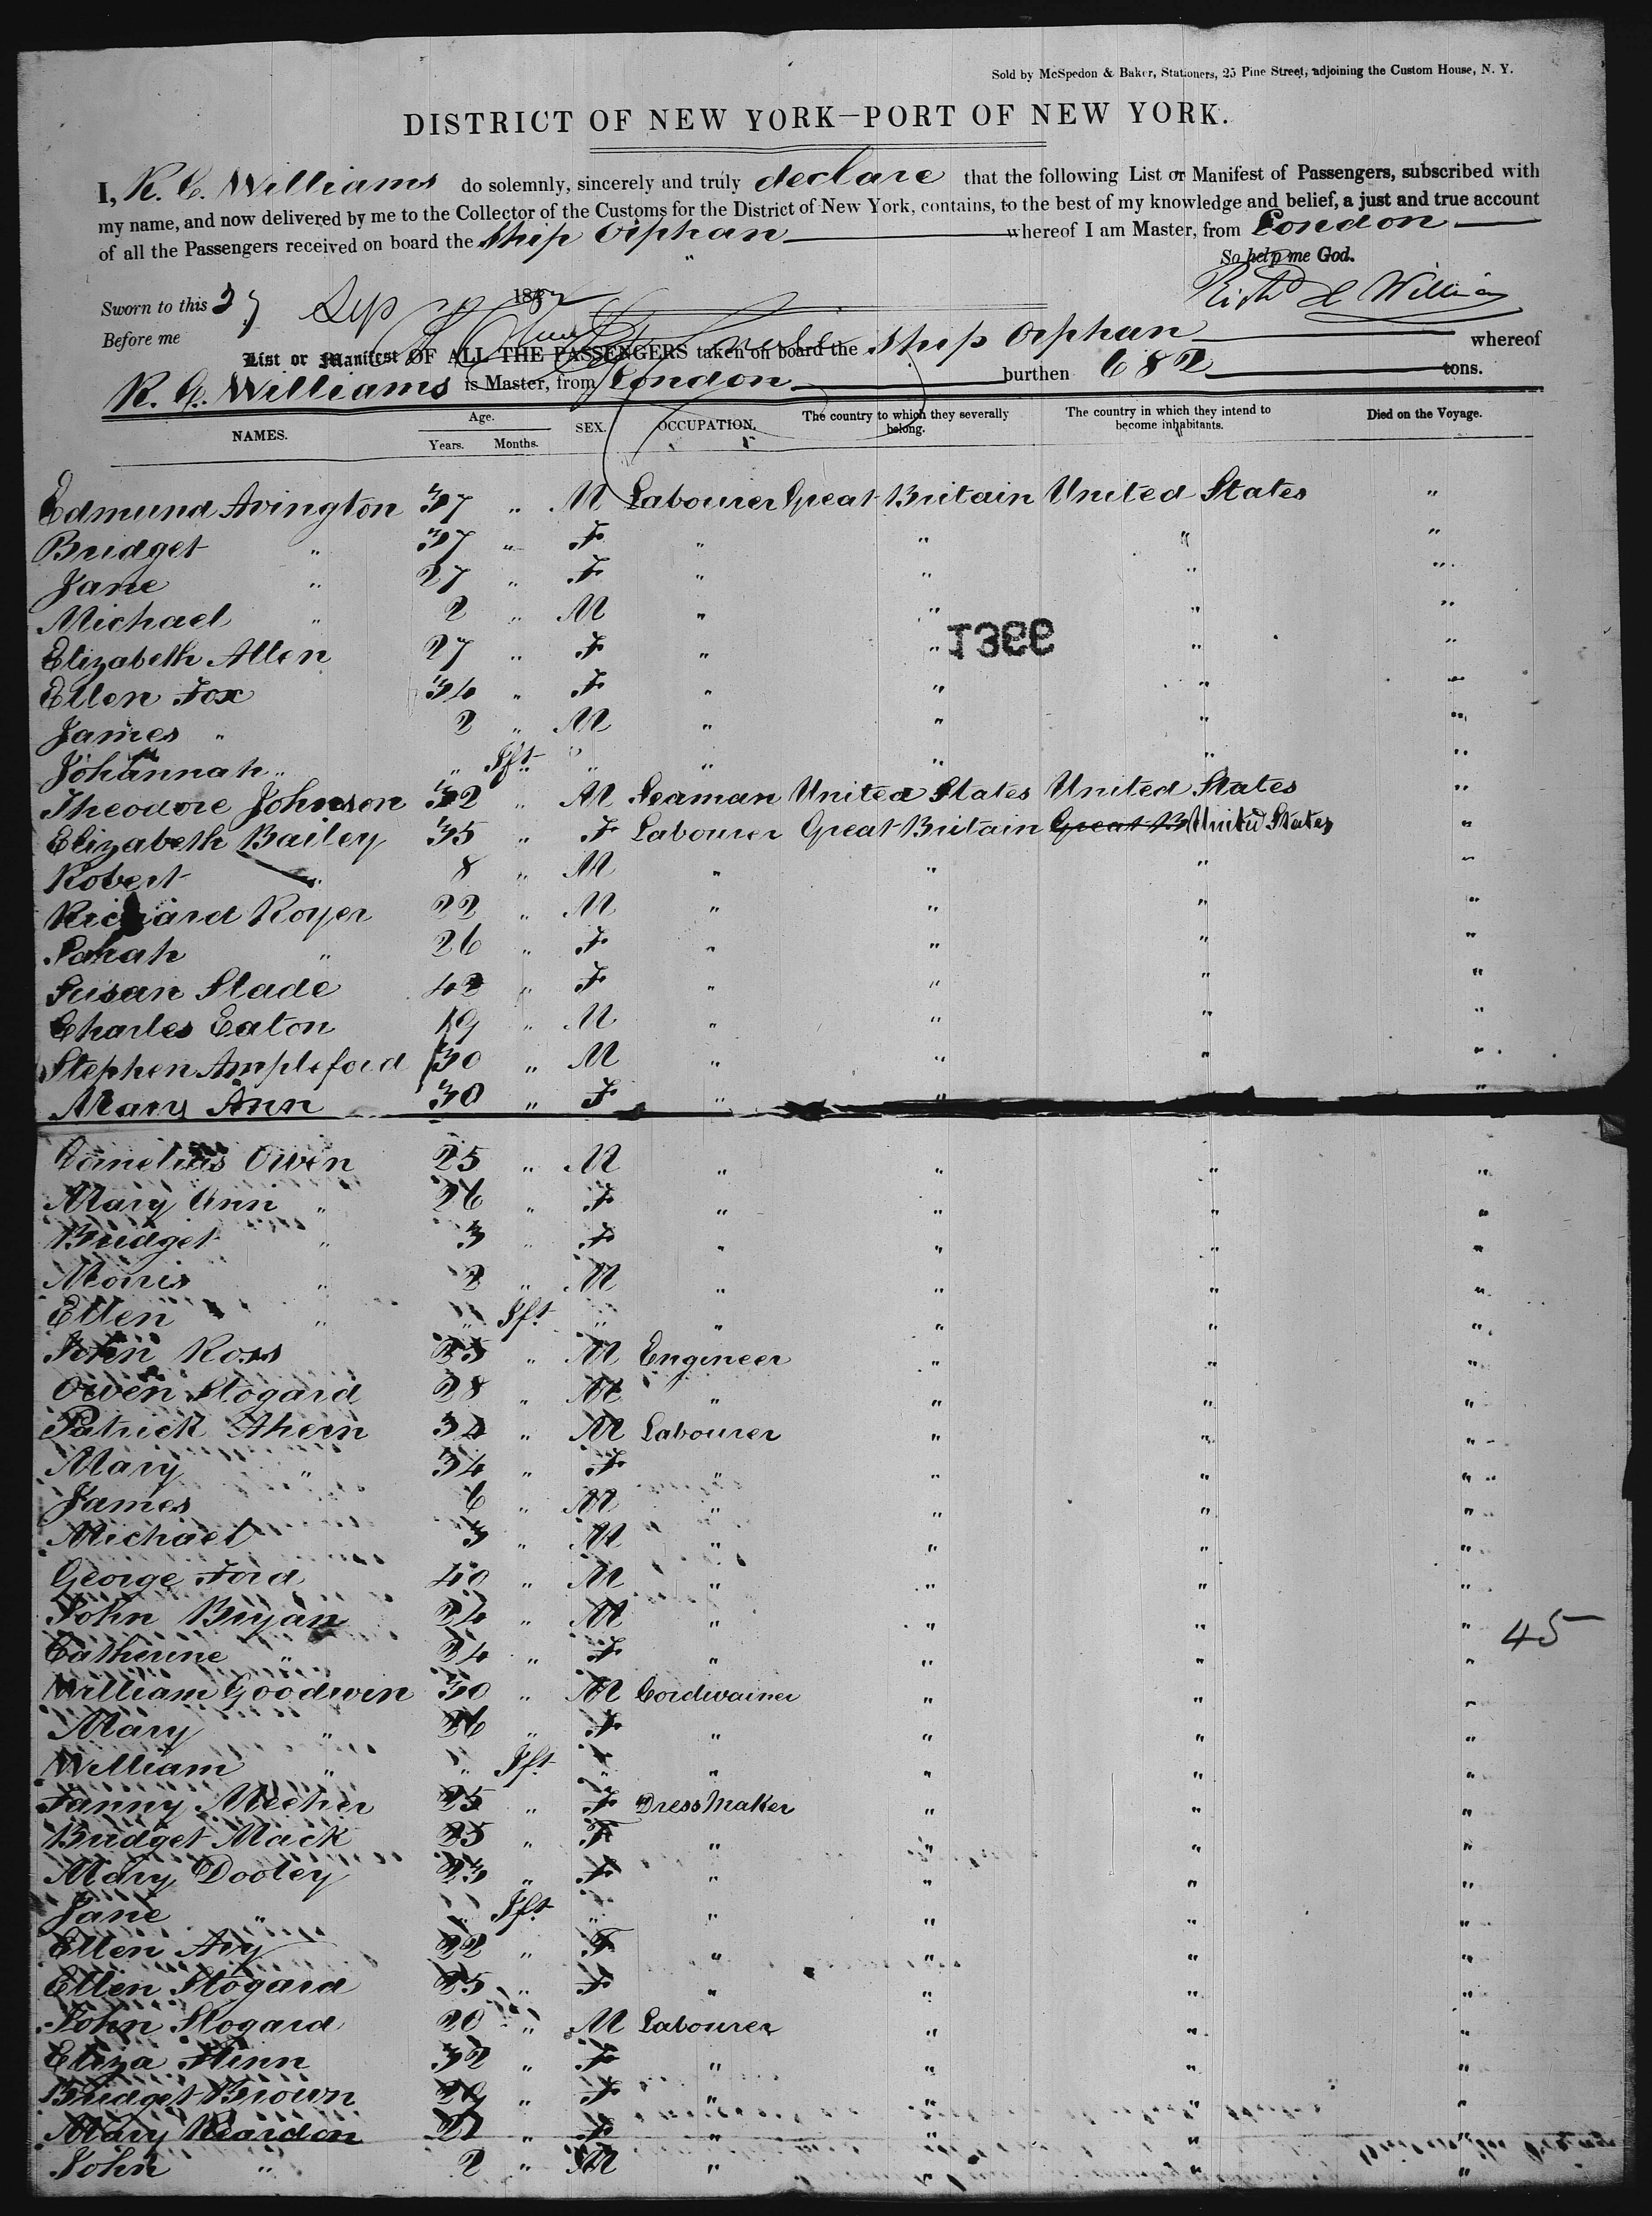 Sold by McSpedon & Baker, Stationers, 25 Pine Street, adjoining the Custom House, N. Y.
DISTRICT OF NEW YORK—PORT OF NEW YORK.
I, R. C. Williams do solemnly, sincerely and truly declare that the following List or Manifest of Passengers, subscribed with
my name, and now delivered by me to the Collector of the Customs for the District of New York, contains, to the best of my knowledge and belief, a just and true account
of all the Passengers received on board the Ship Orphan whereof I am Master, from London
So help me God.
Sworn to this Sep 184
Before me
List or Manifest OF ALL THE PASSENGERS taken on board the Ship Orphan whereof
R. G. Williams is Master, from London burthen 682 tons.
NAMES. Age. Years. Months. SEX. OCCUPATION. The country to which they severally belong. The country in which they intend to become inhabitants. Died on the Voyage.
Edmund Avington 37 " M Labourer Great Britain United States "
Bridget " 37 " F " " " "
Jane " 27 " F " " " "
Michael " 2 " M " " " "
Elizabeth Allen 27 " F " " " "
1399
Ellen Fox 34 " F " " " "
James " 2 " M " " " "
Johannah " " Ift " " " " "
Theodore Johnson 32 " M Seaman United States United States "
Elizabeth Bailey 35 " F Labourer Great Britain Great B United States "
Robert " 8 " M " " " "
Richard Royer 22 " M " " " "
Sarah " 26 " F " " " "
Susan Slade 42 " F " " " "
Charles Eaton 19 " M " " " "
Stephen Ampleford 30 " M " " " "
Mary Ann 30 " F " " "
Cornelius Owen 25 " M " " " "
Mary Ann " 26 " F " " " "
Bridget " 3 " F " " " "
Morris " 2 " M " " " "
Ellen " " Ift " " " " "
John Ross 25 " M Engineer " " "
Owen Stogard 28 " M " " " "
Patrick Ahern 34 " M Labourer " " "
Mary " 34 " F " " " "
James 6 " M " " " "
Michael 3 " M " " " "
George Ford 40 " M " " " "
John Bryan 24 " M " " " " 45
Catherine " 24 " F " " " "
William Goodwin 30 " M Cordwainer " " "
Mary " 26 " F " " " "
William " " Ift " " " " "
Fanny Meehir 25 " F Dress Maker " " "
Bridget Mack 25 " F " " " "
Mary Dooley 23 " F " " " "
Jane " " Ift " " " " "
Ellen 22 " F " " " "
Ellen Stogard 25 " F " " " "
John Stogard 20 " M Labourer " " "
Eliza Flinn 32 " F " " " "
Bridget Brown 29 " F " " " "
Mary Reardon 27 " F " " " "
John " 2 " M " " " "